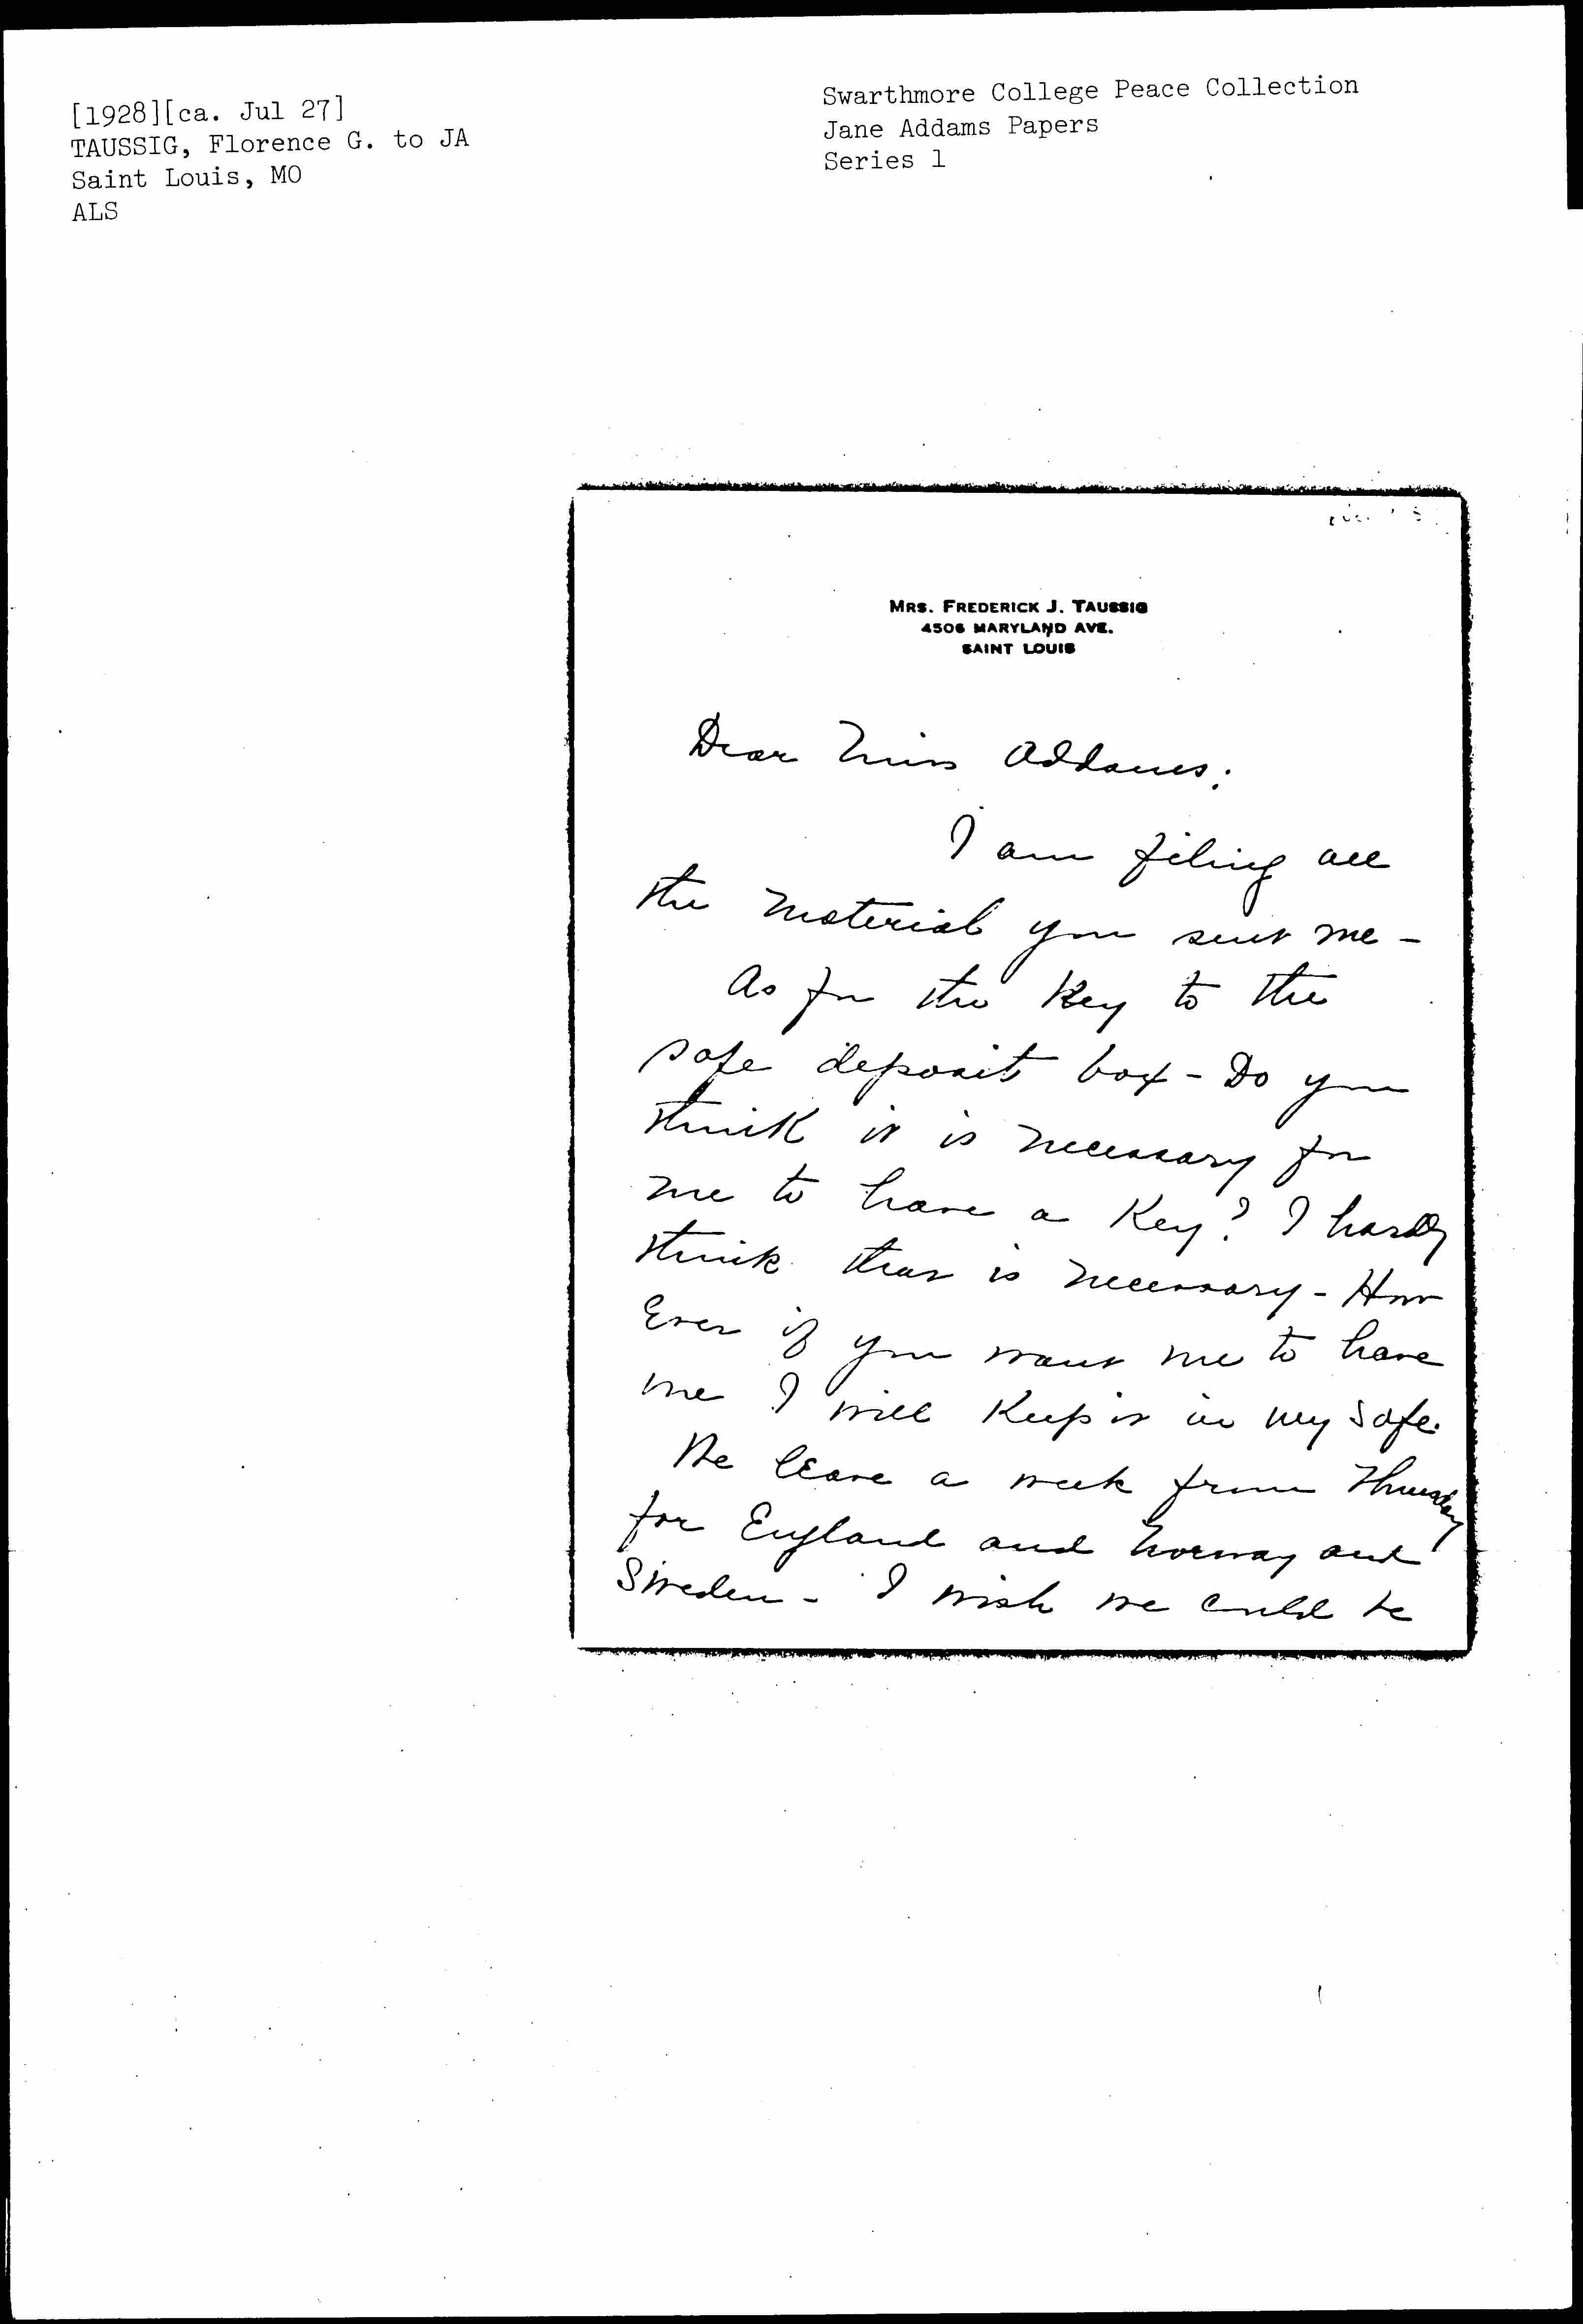 [1928][ca. Jul 27]
TAUSSIG, Florence G. to JA
Saint Louis, MO
ALS
Swarthmore College Peace Collection
Jane Addams Papers
Series 1
MRS. FREDERICK J. TAUSSIG
4506 MARYLAND AVE.
SAINT LOUIS
Dear Miss Addams:
I am filing all
the material you sent me -
As for the Key to the
safe deposit box - Do you
think it is necessary for
me to have a Key? I hardly
think that is necessary - How
Ever if you want me to have
one I will Keep it in my safe.
We leave a week from Thursday
for England and Norway and
Sweden - I wish we could be